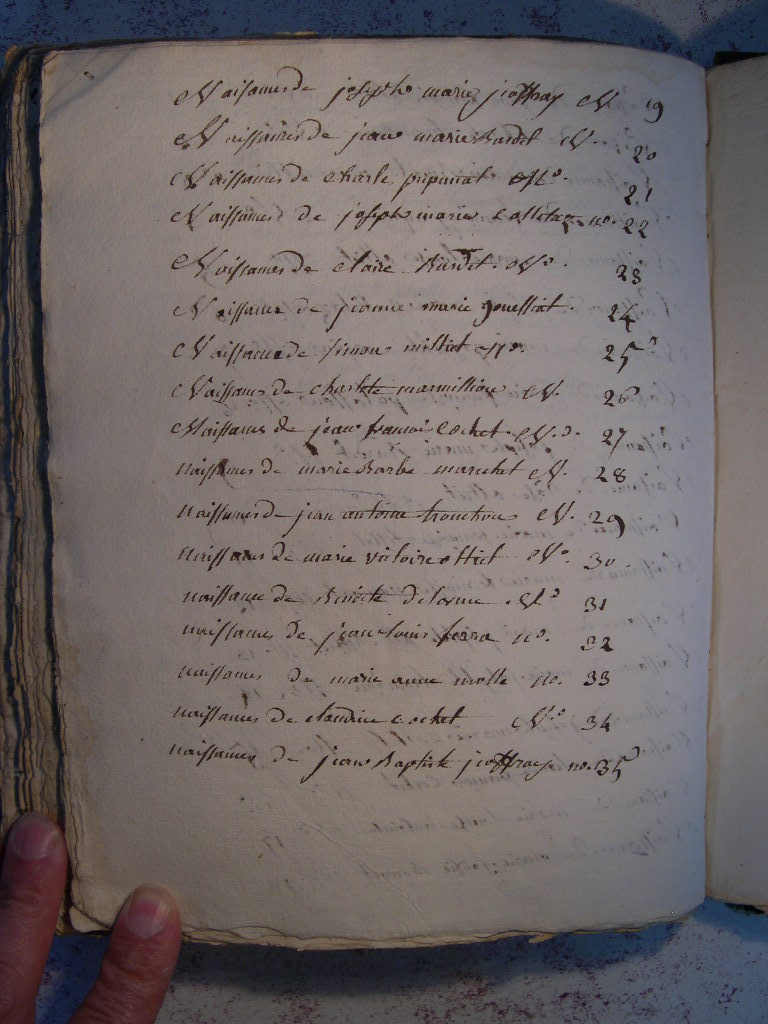 Naissances de joseph marie joffray N 19
Naissances de jean marie Bardet N. 20
Naissances de Charle No. 21
Naissances de joseph marie Colletaz no. 22
Naissances de Claire Bardet. No. 23
Naissance de jeanne marie 24
Naissance de simon milliet no. 25
Naissances de charlote marmillion N. 26
Naissance de jean francois Cochet. N.o. 27
naissances de marie Barbe maruchet N. 28
naissances de jean antoine tronchon N. 29
naissances de marie victoire ottiet No. 30.
naissance de Benoite delorme No 31
naissances de jean louis ferra no. 32
naissances de marie anne molle no. 33
naissances de claudine cochet No 34
naissances de jean Baptiste joffray no. 35